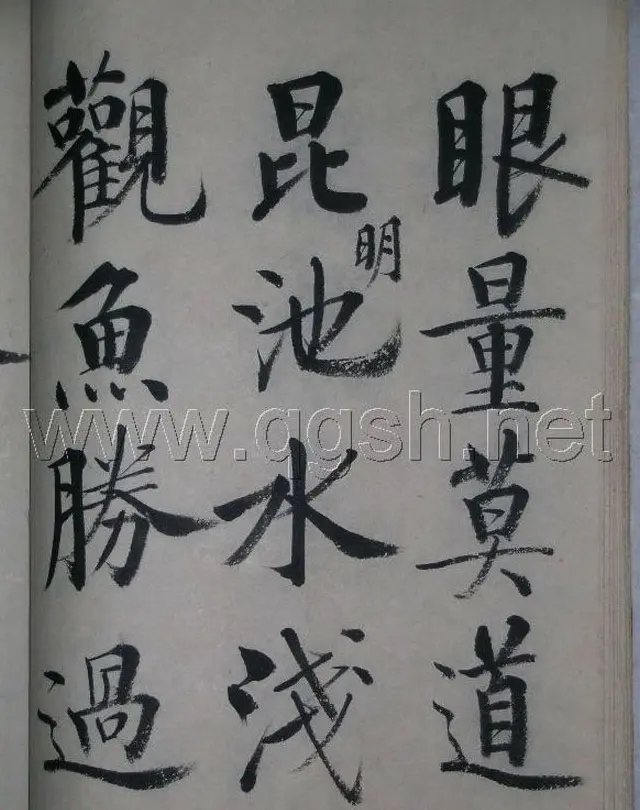 眼量莫道
昆明池水淺
觀魚勝過
www.qgsh.net